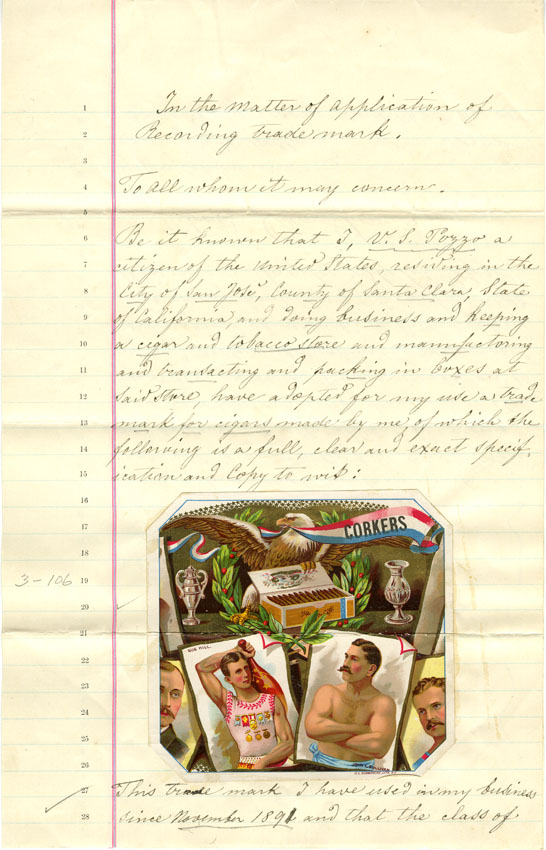 1 In the matter of application of
2 Recording trade mark.
3
4 To all whom it may concern.
5
6 Be it known that I, V. S. Pozzo a
7 citizen of the United States, residing in the
8 City of San José, County of Santa Clara, State
9 of California, and doing business and keeping
10 a cigar and tobacco store and manufacturing
11 and transacting and packing in boxes at
12 said store, have adopted for my use a trade
13 mark for cigars made by me of which the
14 following is a full, clear and exact specif-
15 ication and Copy to wit:
16
17
CORKERS
18
3-106 19
20
21
BUB HILL.
22
23
24
25
JOHN L. SULLIVAN
26
27 This trade mark I have used in my business
28 since November 1891 and that the class of